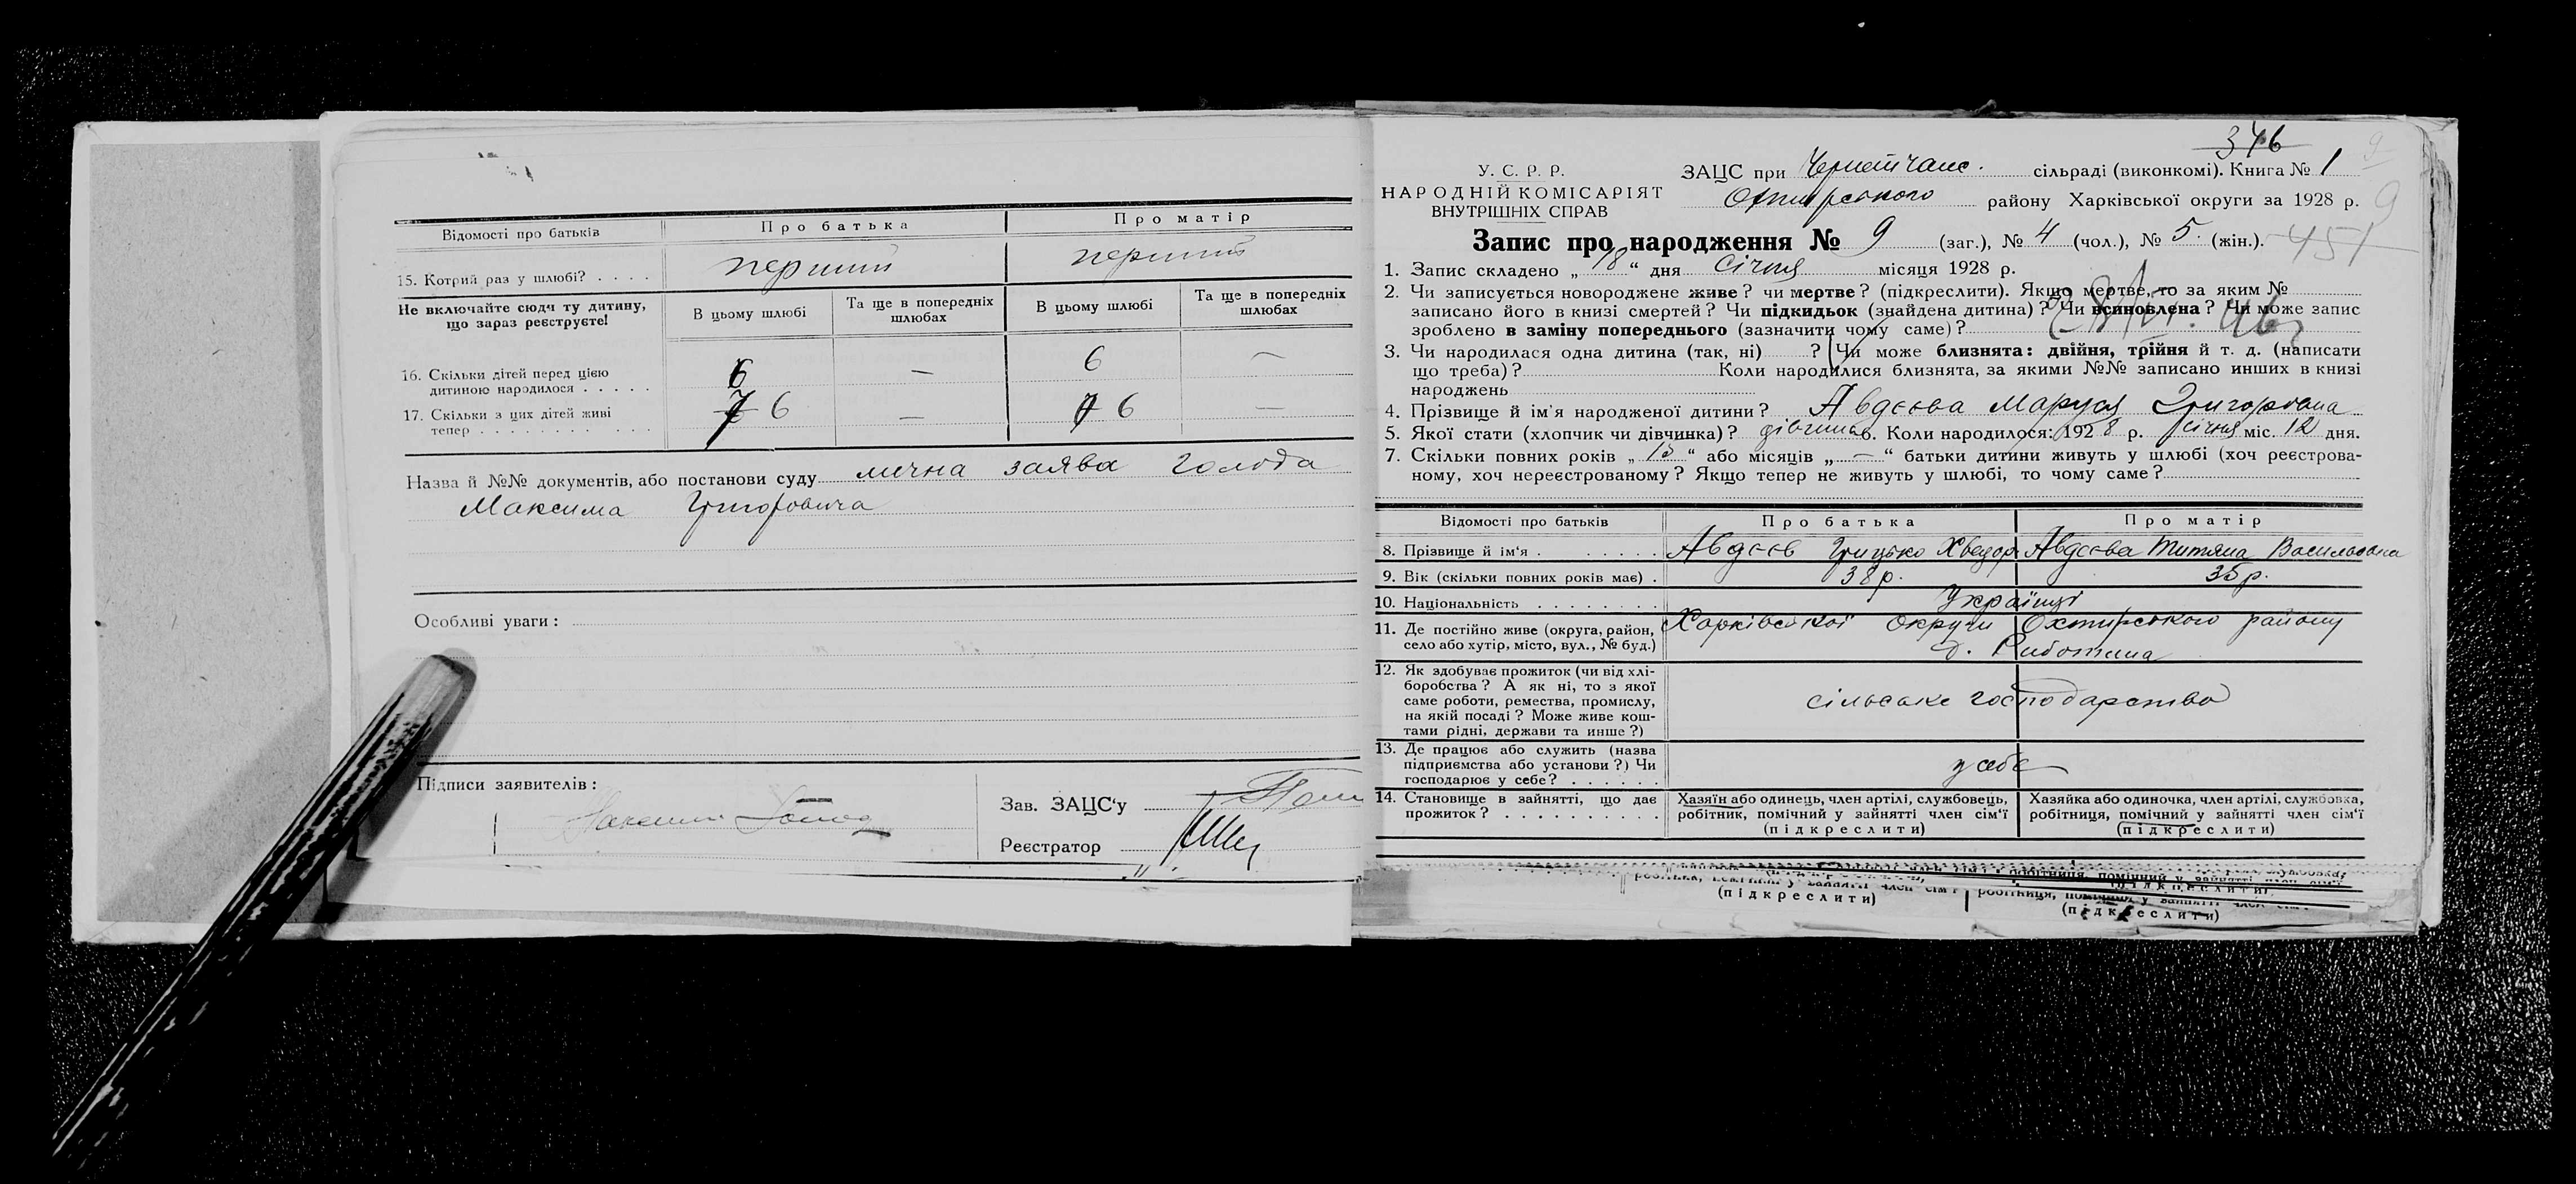 Відомості про батьків
Про батька
Про матір
15. Котрий раз у шлюбі? . . . .
перший
перший
Не включайте сюди ту дитину, що зараз реєструєте!
В цьому шлюбі
Та ще в попередніх шлюбах
В цьому шлюбі
Та ще в попередніх шлюбах
16. Скільки дітей перед цією
дитиною народилося . . . . .
6 — 6 —
17. Скільки з цих дітей живі
тепер . . . . . . . . . . . .
7 6 — 7 6 —
Назва й №№ документів, або постанови суду лична заява Голода
Максима Григоровича
Особливі уваги:
Підписи заявителів:
Зав. ЗАЦС'у
Реєстратор
346
У. С. Р. Р.
НАРОДНІЙ КОМІСАРІЯТ
ВНУТРІШНІХ СПРАВ
ЗАЦС при Чернетчанс. сільраді (виконкомі). Книга № 1
Охтирського району Харківської округи за 1928 р.
9
9
Запис про народження № 9 (заг.), № 4 (чол.), № 5 (жін.).
451
1. Запис складено „18“ дня січня місяця 1928 р.
2. Чи записується новороджене живе? чи мертве? (підкреслити). Якщо мертве, то за яким №
записано його в книзі смертей? Чи підкидьок (знайдена дитина)? Чи всиновлена? Чи може запис
зроблено в заміну попереднього (зазначити чому саме)?
3. Чи народилася одна дитина (так, ні) ? Чи може близнята: двійня, трійня й т. д. (написати
що треба)? Коли народилися близнята, за якими №№ записано инших в книзі
народжень
4. Прізвище й ім'я народженої дитини? Авдєєва Маруся Григоровна
5. Якої стати (хлопчик чи дівчинка)? дівчинка 6. Коли народилося: 1928 р. січня міс. 12 дня.
7. Скільки повних років „15“ або місяців „—“ батьки дитини живуть у шлюбі (хоч реєстрова-
ному, хоч нереєстрованому? Якщо тепер не живуть у шлюбі, то чому саме?
Відомості про батьків
Про батька
Про матір
8. Прізвище й ім'я . . . . . .
Авдєєв Грицько Хведор
Авдєєва Титяна Васильовна
9. Вік (скільки повних років має) .
38 р.
35 р.
10. Національність . . . . . . . .
Українці
11. Де постійно живе (округа, район,
село або хутір, місто, вул., № буд.)
Харківської округи Охтирського району
12. Як здобуває прожиток (чи від хлі-
боробства? А як ні, то з якої
саме роботи, ремества, промислу,
на якій посаді? Може живе кош-
тами рідні, держави та инше?)
сільське господарство
13. Де працює або служить (назва
підприємства або установи?) Чи
господарює у себе? . . . . . .
у себе
14. Становище в зайнятті, що дає
прожиток? . . . . . . . . . .
Хазяїн або одинець, член артілі, службовець,
робітник, помічний у зайнятті член сім'ї
(підкреслити)
Хазяйка або одиночка, член артілі, службовка,
робітниця, помічний у зайнятті член сім'ї
(підкреслити)
(підкреслити)
(підкреслити)